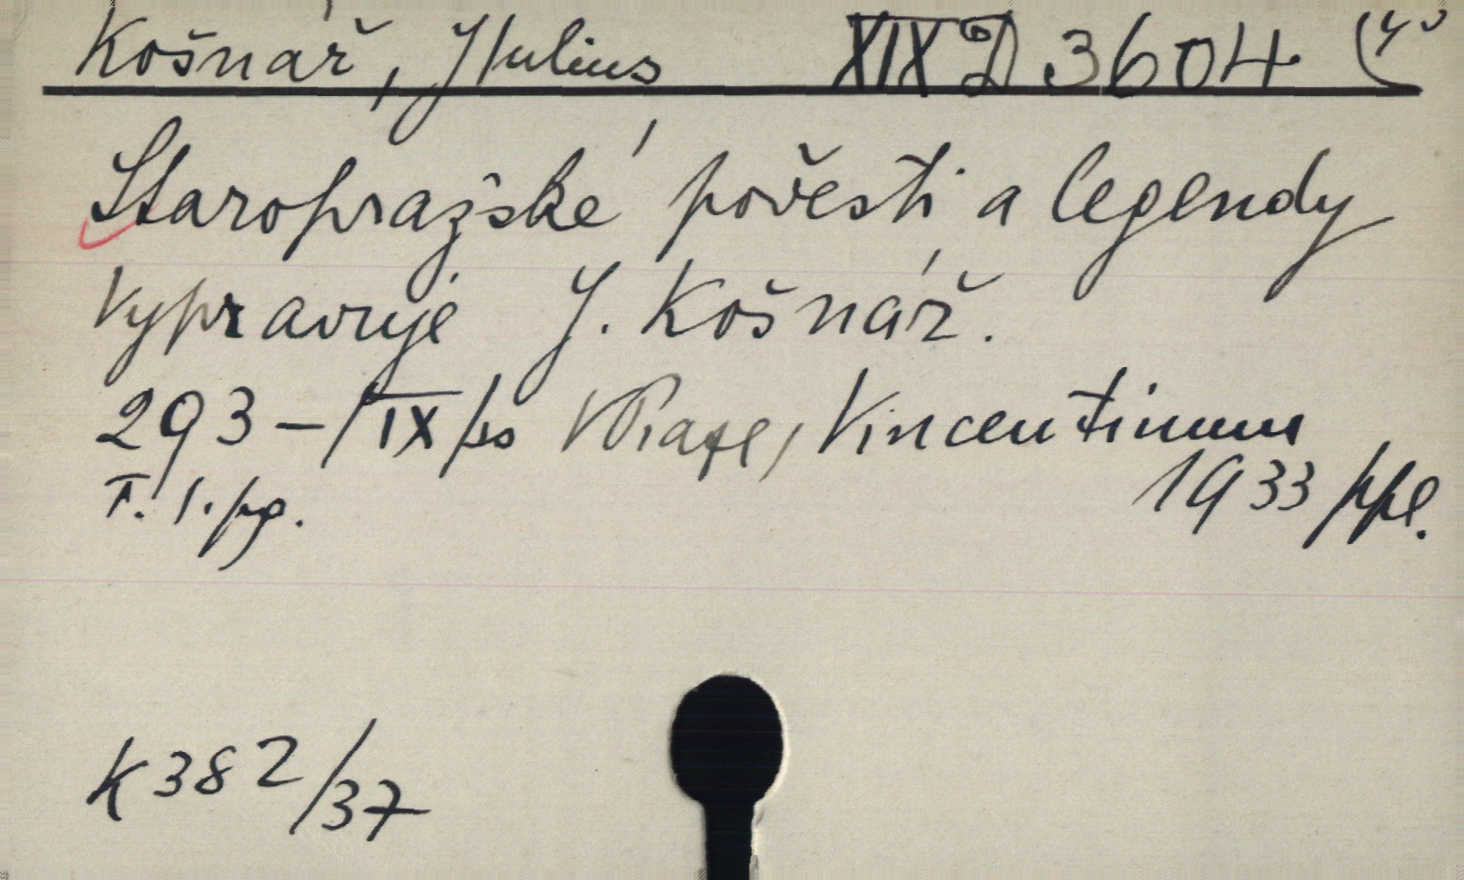 Košnář, Julius XIX D 3604 (4°
Staropražské pověsti a legendy
Vypravuje J. Košnář.
293-/IX/ss V Praze, Vincentinum
F. 1. pg. 1933 ppl.
K 382/37